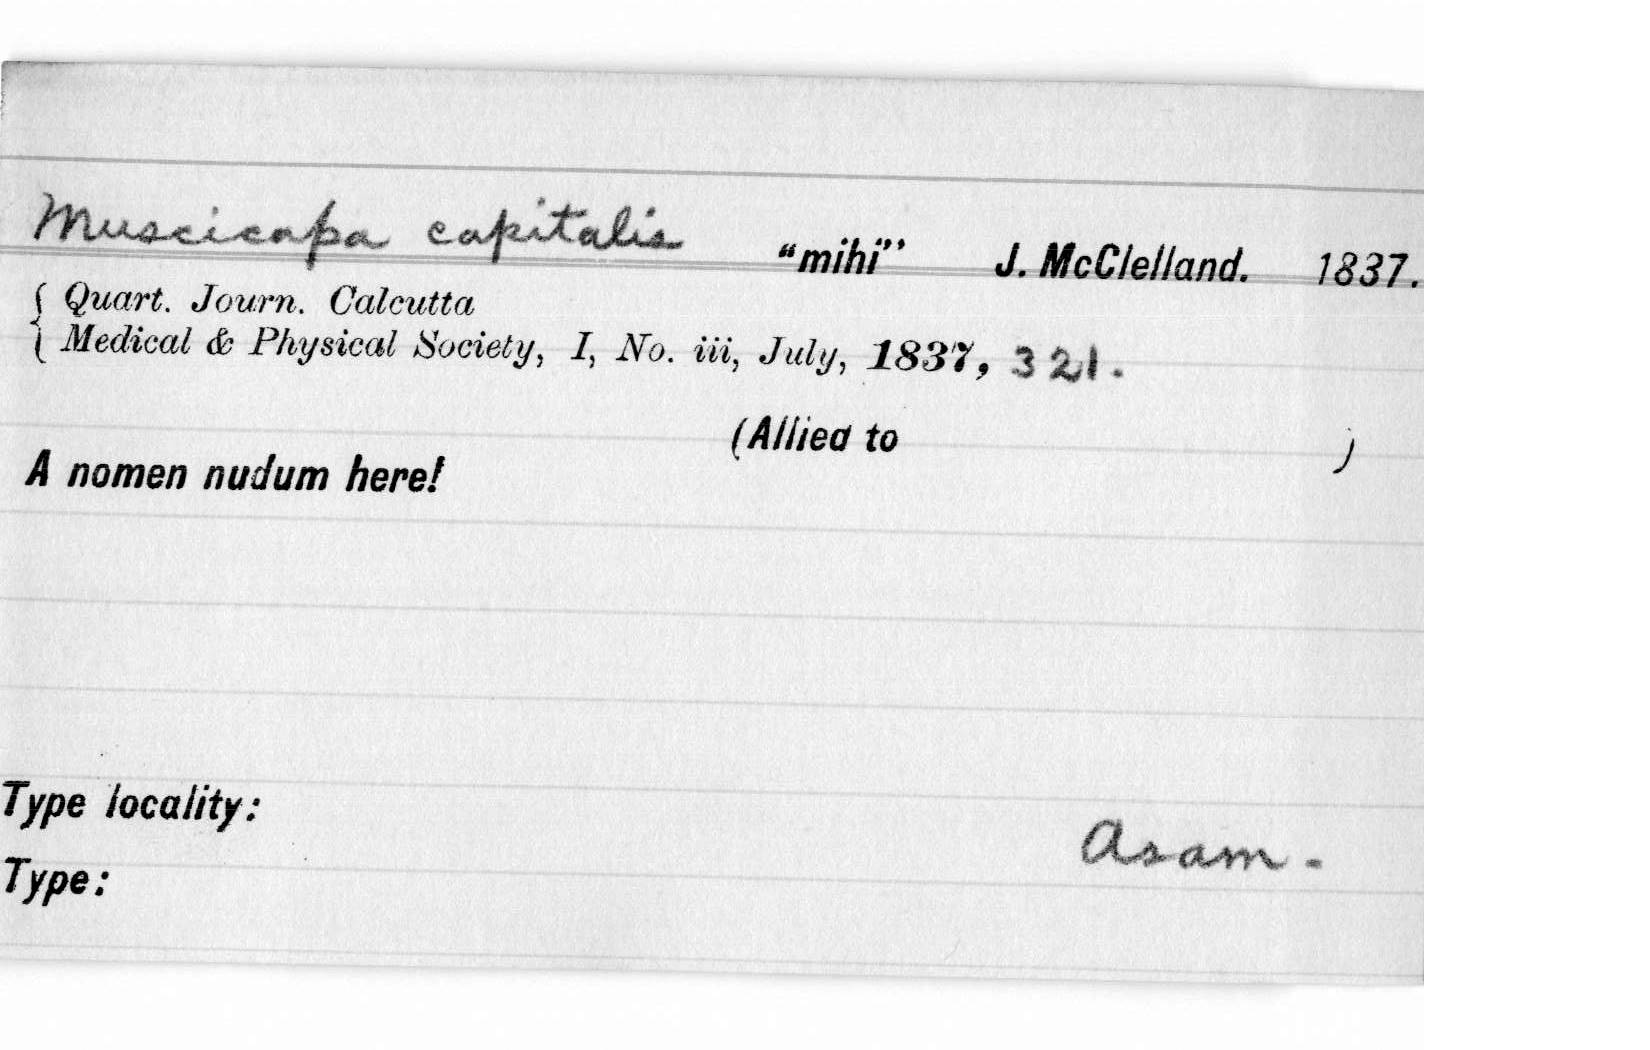 Muscicapa capitalis "mihi" J. McClelland. 1837.
{ Quart. Journ. Calcutta
Medical & Physical Society, I, No. iii, July, 1837, 321.
(Allied to )
A nomen nudum here!
Type locality:
Asam.
Type: